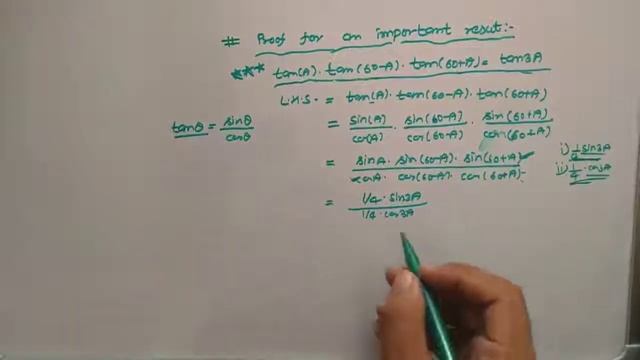 # Proof for an important result:-
*** tan(A). tan(60-A). tan(60+A) = tan3A
L.H.S. = tan(A). tan(60-A). tan(60+A)
tanθ = sinθ/cosθ
= sin(A)/cos(A) . sin(60-A)/cos(60-A) . sin(60+A)/cos(60+A)
= sinA. sin(60-A). sin(60+A)/cosA. cos(60-A). cos(60+A)
i) 1/4 sin3A
ii) 1/4 . cos3A
= 1/4 . sin3A/1/4 . cos3A